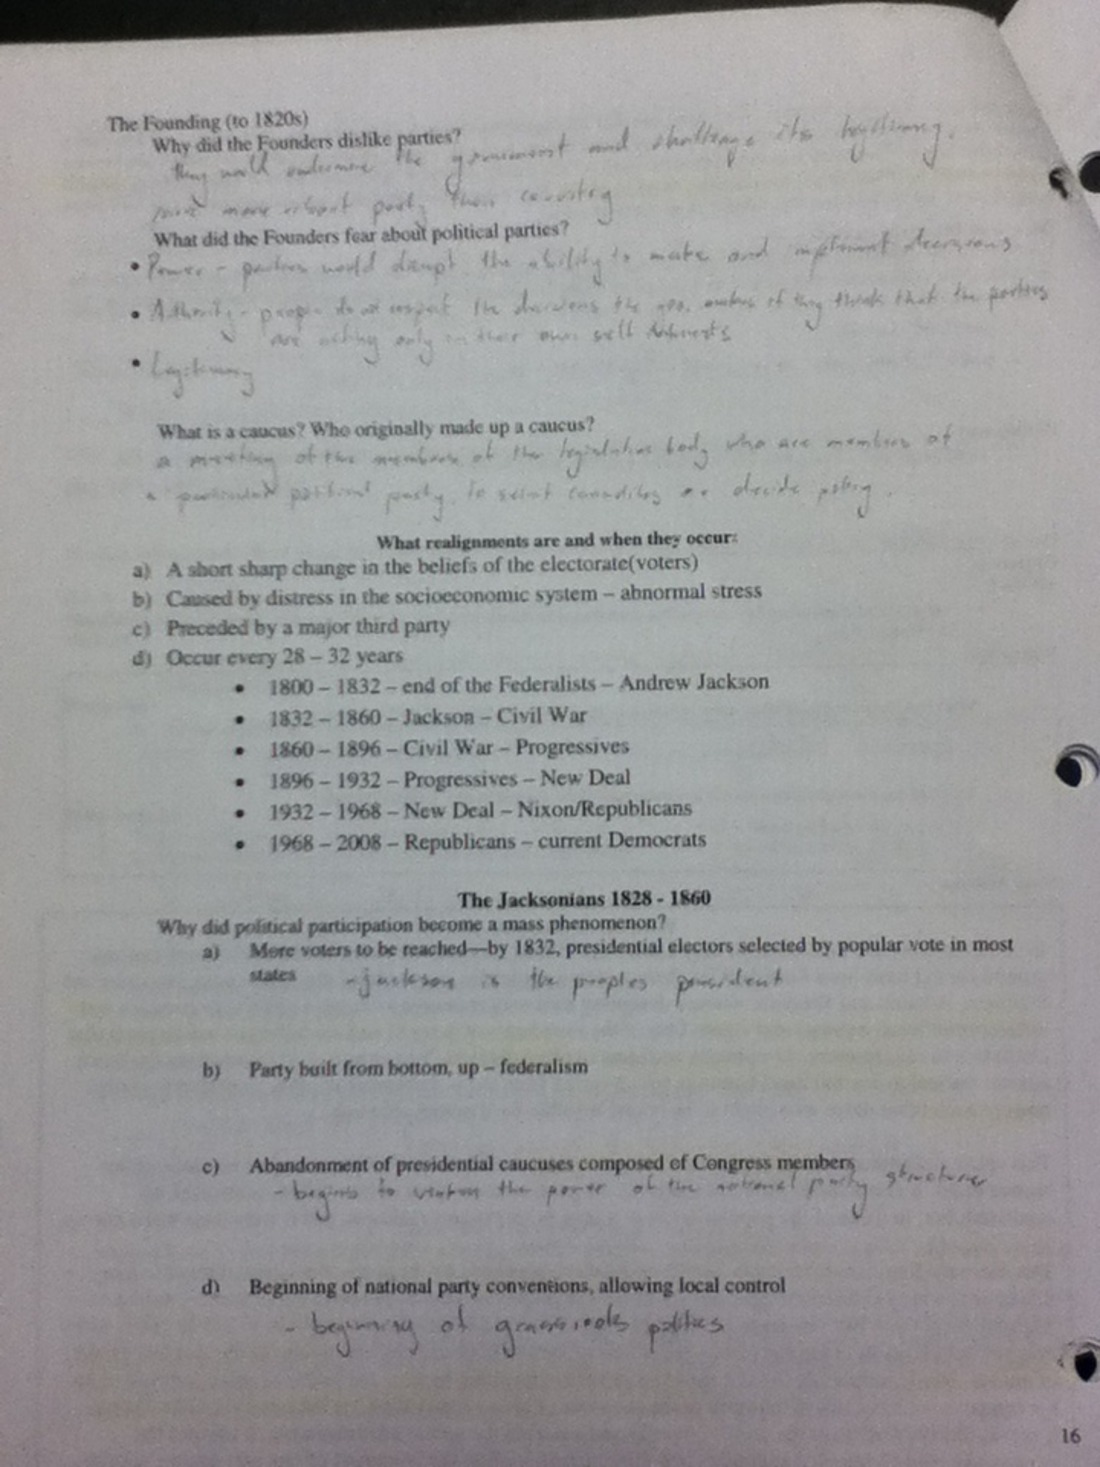 The Founding (to 1820s)
Why did the Founders dislike parties?
they would undermine the government and challenge its legitimacy.
more party their country
What did the Founders fear about political parties?
• Power - parties would disrupt the ability to make and implement decisions
• Authority - people do not respect the decisions the gov. makes if they think that the parties
are acting only in their own self interests
• Legitimacy
What is a caucus? Who originally made up a caucus?
a meeting of the members of the legislative body who are members of
a particular political party, to select candidates or decide policy.
What realignments are and when they occur:
a) A short sharp change in the beliefs of the electorate(voters)
b) Caused by distress in the socioeconomic system – abnormal stress
c) Preceded by a major third party
d) Occur every 28 – 32 years
• 1800 – 1832 – end of the Federalists – Andrew Jackson
• 1832 – 1860 – Jackson – Civil War
• 1860 – 1896 – Civil War – Progressives
• 1896 – 1932 – Progressives – New Deal
• 1932 – 1968 – New Deal – Nixon/Republicans
• 1968 – 2008 – Republicans – current Democrats
The Jacksonians 1828 - 1860
Why did political participation become a mass phenomenon?
a) More voters to be reached—by 1832, presidential electors selected by popular vote in most
states - jackson is the peoples president
b) Party built from bottom, up – federalism
c) Abandonment of presidential caucuses composed of Congress members
- begins to the power of the national party structure
d) Beginning of national party conventions, allowing local control
- beginning of grassroots politics
16